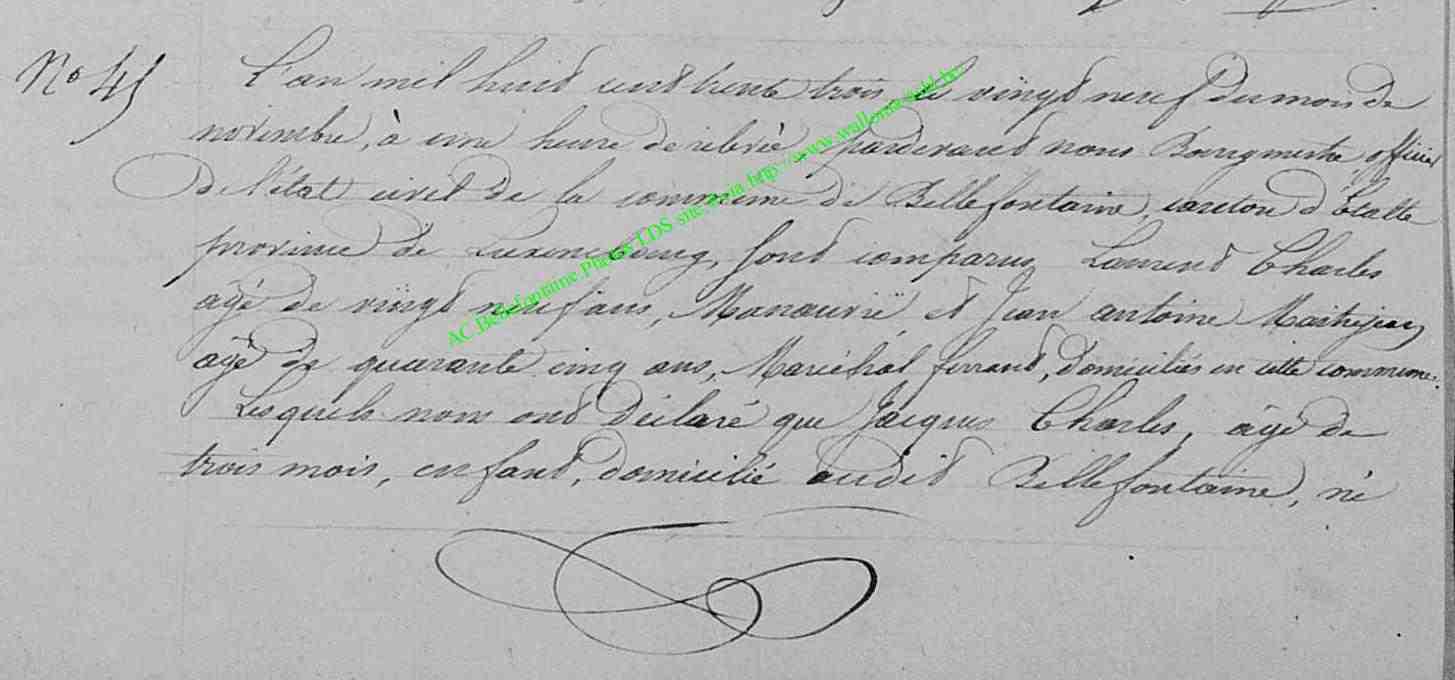 No 45
L'an mil huit cent trente trois, le vingt neuf du mois de
novembre, à une heure de relevée, pardevant nous Bourgmestre officier
de l'état civil de la commune de Bellefontaine, canton d'Etalle
province de Luxembourg, sont comparus Laurent Charles
âgé de vingt neuf ans, Manœuvre et Jean antoine Maitrejean
âgé de quarante cinq ans, Maréchal ferrant, domiciliés en cette commune.
Lesquels nous ont déclaré que Jacques Charles, âgé de
trois mois, enfant, domicilié audit Bellefontaine, né
AC Bellefontaine Photos LDS site via http://www.wallonia